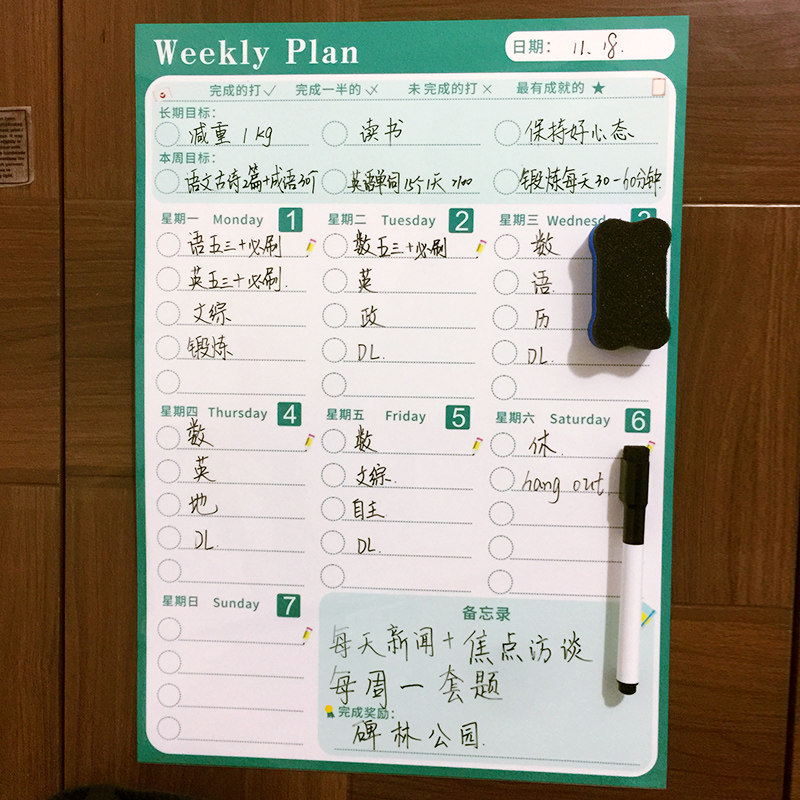 Weekly Plan 日期： 11.18.
完成的打✓ 完成一半的 未完成的打× 最有成就的★
长期目标：
减重1kg 读书 保持好心态
本周目标：
语文古诗2篇+成语30个 英语单词15个1天 >100 锻炼每天30-60分钟
星期一 Monday 1
语五三+必刷
英五三+必刷.
文综
锻炼
星期二 Tuesday 2
数五三+必刷
英
政
DL.
星期三 Wednesd
数
语.
历
DL.
星期四 Thursday 4
数
英
地
DL.
星期五 Friday 5
数
文综.
自主
DL.
星期六 Saturday 6
休.
hang out
星期日 Sunday 7
备忘录
每天新闻+焦点访谈
每周一套题
完成奖励：
碑林公园.